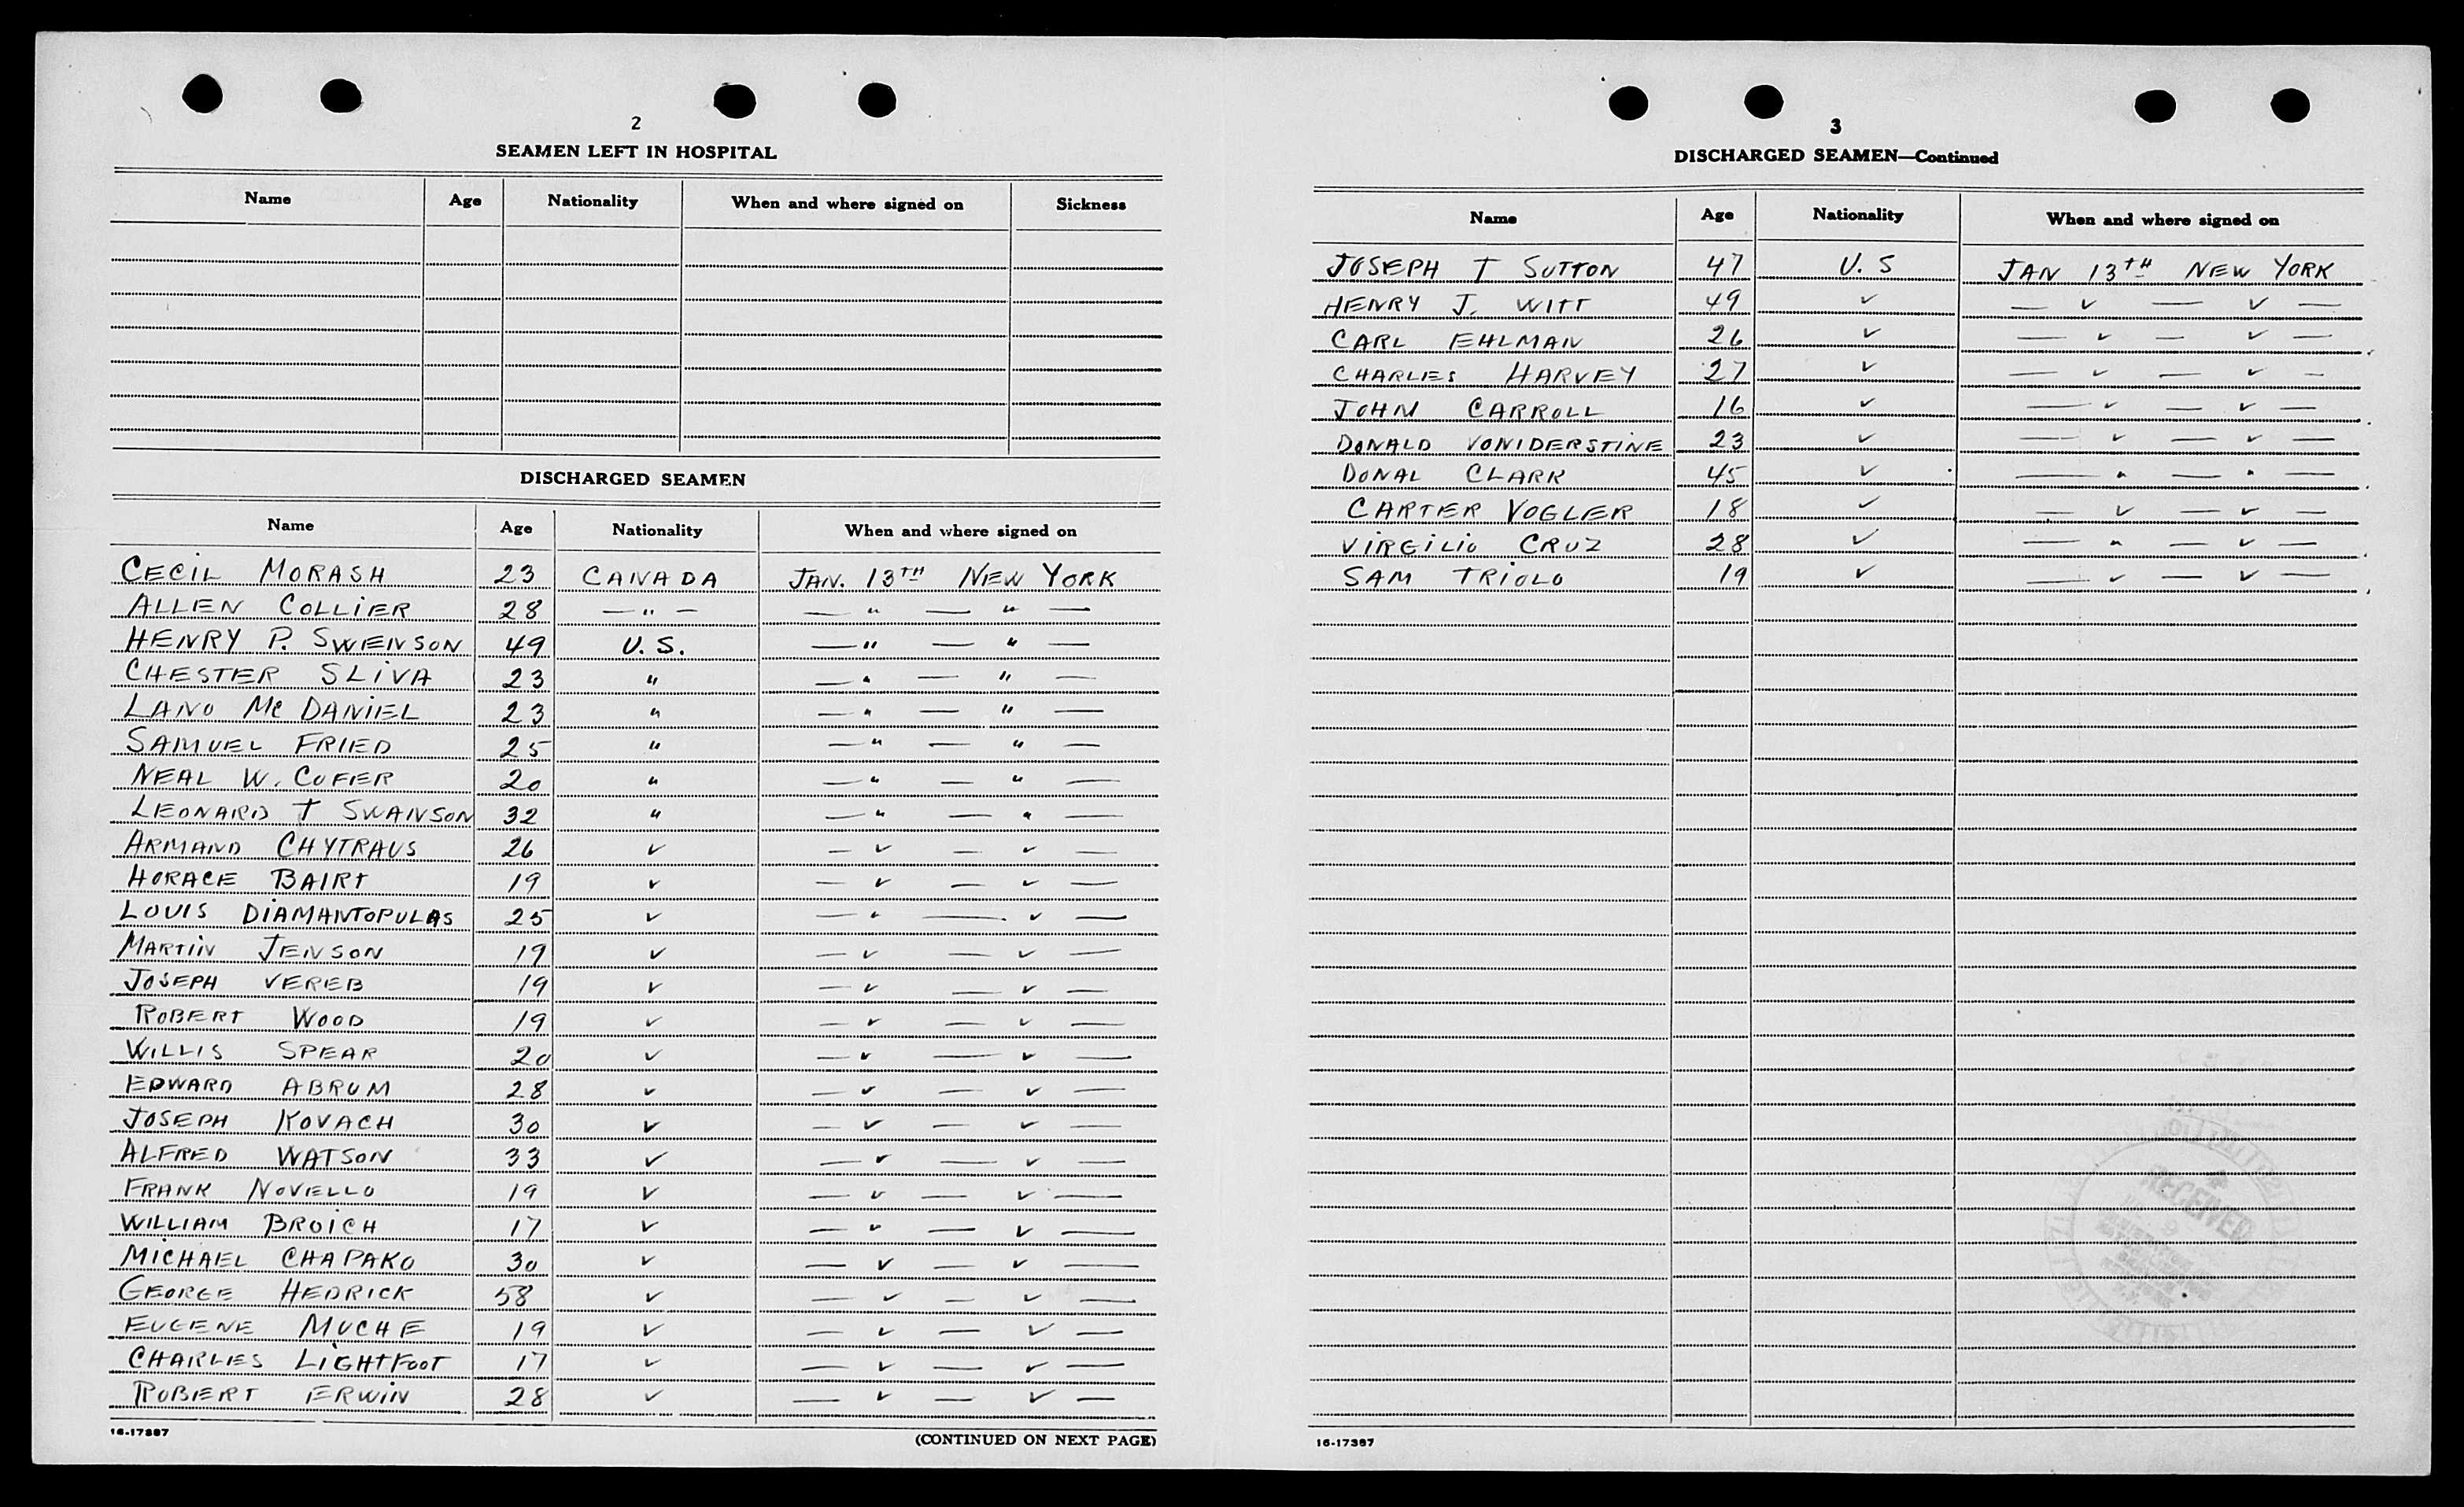 2
SEAMEN LEFT IN HOSPITAL
Name Age Nationality When and where signed on Sickness
DISCHARGED SEAMEN
Name Age Nationality When and where signed on
CECIL MORASH 23 CANADA JAN. 13TH NEW YORK
ALLEN COLLIER 28 — " — — " — " —
HENRY P. SWENSON 49 U. S. — " — " —
CHESTER SLIVA 23 " — " — " —
LANO Mc DANIEL 23 " — " — " —
SAMUEL FRIED 25 " — " — " —
NEAL W. COFER 20 " — " — " —
LEONARD T SWANSON 32 " — " — " —
ARMAND CHYTRAUS 26 ✓ — ✓ — ✓ —
HORACE BAIRT 19 ✓ — ✓ — ✓ —
LOUIS DIAMANTOPULAS 25 ✓ — " — ✓ —
MARTIN JENSON 19 ✓ — ✓ — ✓ —
JOSEPH VEREB 19 ✓ — ✓ — ✓ —
ROBERT WOOD 19 ✓ — ✓ — ✓ —
WILLIS SPEAR 20 ✓ — ✓ — ✓ —
EDWARD ABRUM 28 ✓ — ✓ — ✓ —
JOSEPH KOVACH 30 ✓ — ✓ — ✓ —
ALFRED WATSON 33 ✓ — ✓ — ✓ —
FRANK NOVELLO 19 ✓ — ✓ — ✓ —
WILLIAM BROICH 17 ✓ — ✓ — ✓ —
MICHAEL CHAPAKO 30 ✓ — ✓ — ✓ —
GEORGE HEDRICK 58 ✓ — ✓ — ✓ —
EUGENE MUCHE 19 ✓ — ✓ — ✓ —
CHARLES LIGHTFOOT 17 ✓ — ✓ — ✓ —
ROBERT ERWIN 28 ✓ — ✓ — ✓ —
16-17387 (CONTINUED ON NEXT PAGE)
3
DISCHARGED SEAMEN—Continued
Name Age Nationality When and where signed on
JOSEPH T SUTTON 47 U. S JAN 13TH NEW YORK
HENRY J. WITT 49 ✓ — ✓ — ✓ —
CARL EHLMAN 26 ✓ — ✓ — ✓ —
CHARLES HARVEY 27 ✓ — ✓ — ✓ —
JOHN CARROLL 16 ✓ — ✓ — ✓ —
DONALD VONIDERSTINE 23 ✓ — ✓ — ✓ —
DONAL CLARK 45 ✓ — " — " —
CARTER VOGLER 18 ✓ — ✓ — ✓ —
VIRGILIO CRUZ 28 ✓ — " — ✓ —
SAM TRIOLO 19 ✓ — ✓ — ✓ —
RECEIVED
16-17387